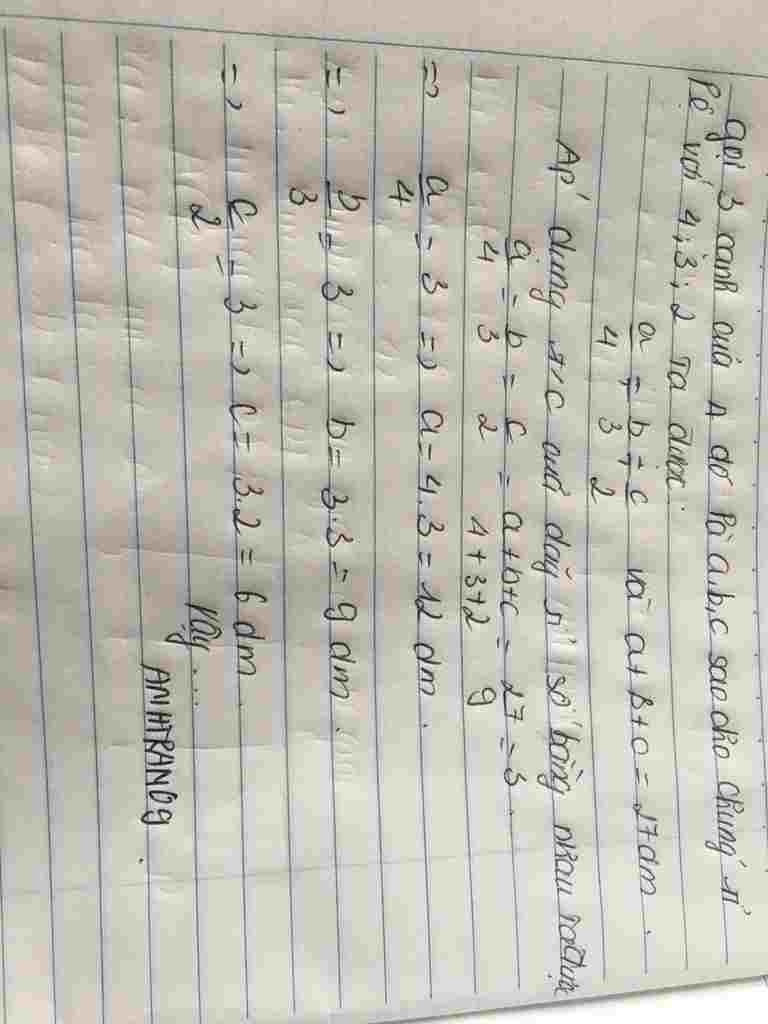 Gọi 3 cạnh của Δ đó là a,b,c sao cho chúng tỉ
lệ với 4; 3; 2 ta được:
a/4 = b/3 = c/2 và a+b+c = 27dm.
Áp dụng t/c của dãy tỉ số bằng nhau ta được
a/4 = b/3 = c/2 = a+b+c/4+3+2 = 27/9 = 3.
=> a/4 = 3 => a = 4.3 = 12 dm.
=> b/3 = 3 => b = 3.3 = 9 dm.
=> c/2 = 3 => c = 3.2 = 6 dm.
Vậy ...
ANHTRAN09.